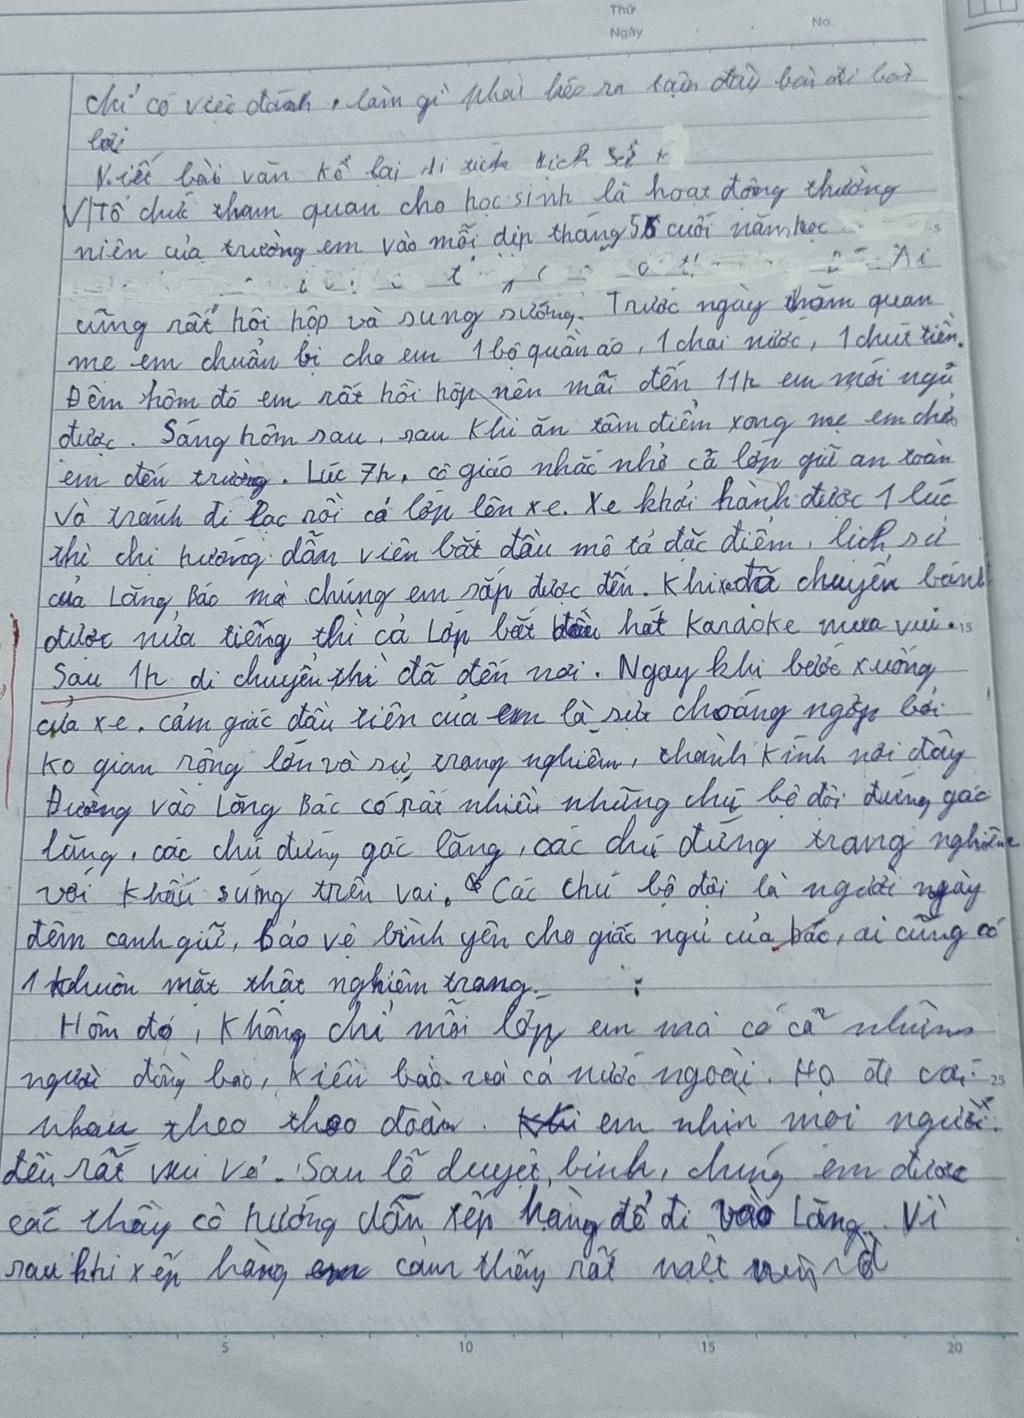 Thứ
Ngày
No.
chỉ có việc đánh, làm gì phải kéo ra tận đây bài
Viết bài văn kể lại di tích lịch sử
V| Tổ chức tham quan cho học sinh là hoạt động thường
niên của trường em vào mỗi dịp tháng 5 cuối năm học
Ai
cũng rất hồi hộp và sung sướng. Trước ngày thăm quan
mẹ em chuẩn bị cho em 1 bộ quần áo, 1 chai nước, 1 chút tiền.
Đêm hôm đó em rất hồi hộp nên mãi đến 11h em mới ngủ
được. Sáng hôm sau, sau khi ăn tâm điểm xong mẹ em chở
em đến trường. Lúc 7h, cô giáo nhắc nhở cả lớp giữ an toàn
và tránh đi lạc rồi cả lớp lên xe. Xe khởi hành được 1 lúc
thì chị hướng dẫn viên bắt đầu mô tả đặc điểm, lịch sử
của Lăng Bác mà chúng em sắp được đến. Khi xe đã chuyển bánh
được nửa tiếng thì cả lớp bắt đầu hát Karaoke mua vui.
Sau 1h di chuyển thì đã đến nơi. Ngay khi bước xuống
cửa xe. cảm giác đầu tiên của em là sự choáng ngợp bởi
ko gian rộng lớn và sự trang nghiêm, thành kính nơi đây
Đường vào Lăng Bác có rất nhiều những chú bộ đội đứng gác
lăng, các chú đứng gác lăng, các chú đứng trang nghiêm
với khẩu súng trên vai. Các chú bộ đội là người ngày
đêm canh giữ, bảo vệ bình yên cho giấc ngủ của bác, ai cũng có
1 khuôn mặt thật nghiêm trang.
Hôm đó, Không chỉ mỗi lớp em mà có cả những
người đồng bào, kiều bào và cả nước ngoài. Họ đi
nhau theo theo đoàn. em nhìn mọi người
đều rất vui vẻ. Sau lễ duyệt binh, chúng em được
các thầy cô hướng dẫn xếp hàng để đi vào Lăng. Vì
sau khi xếp hàng em cảm thấy rất
5 10 15 20
5
15
25